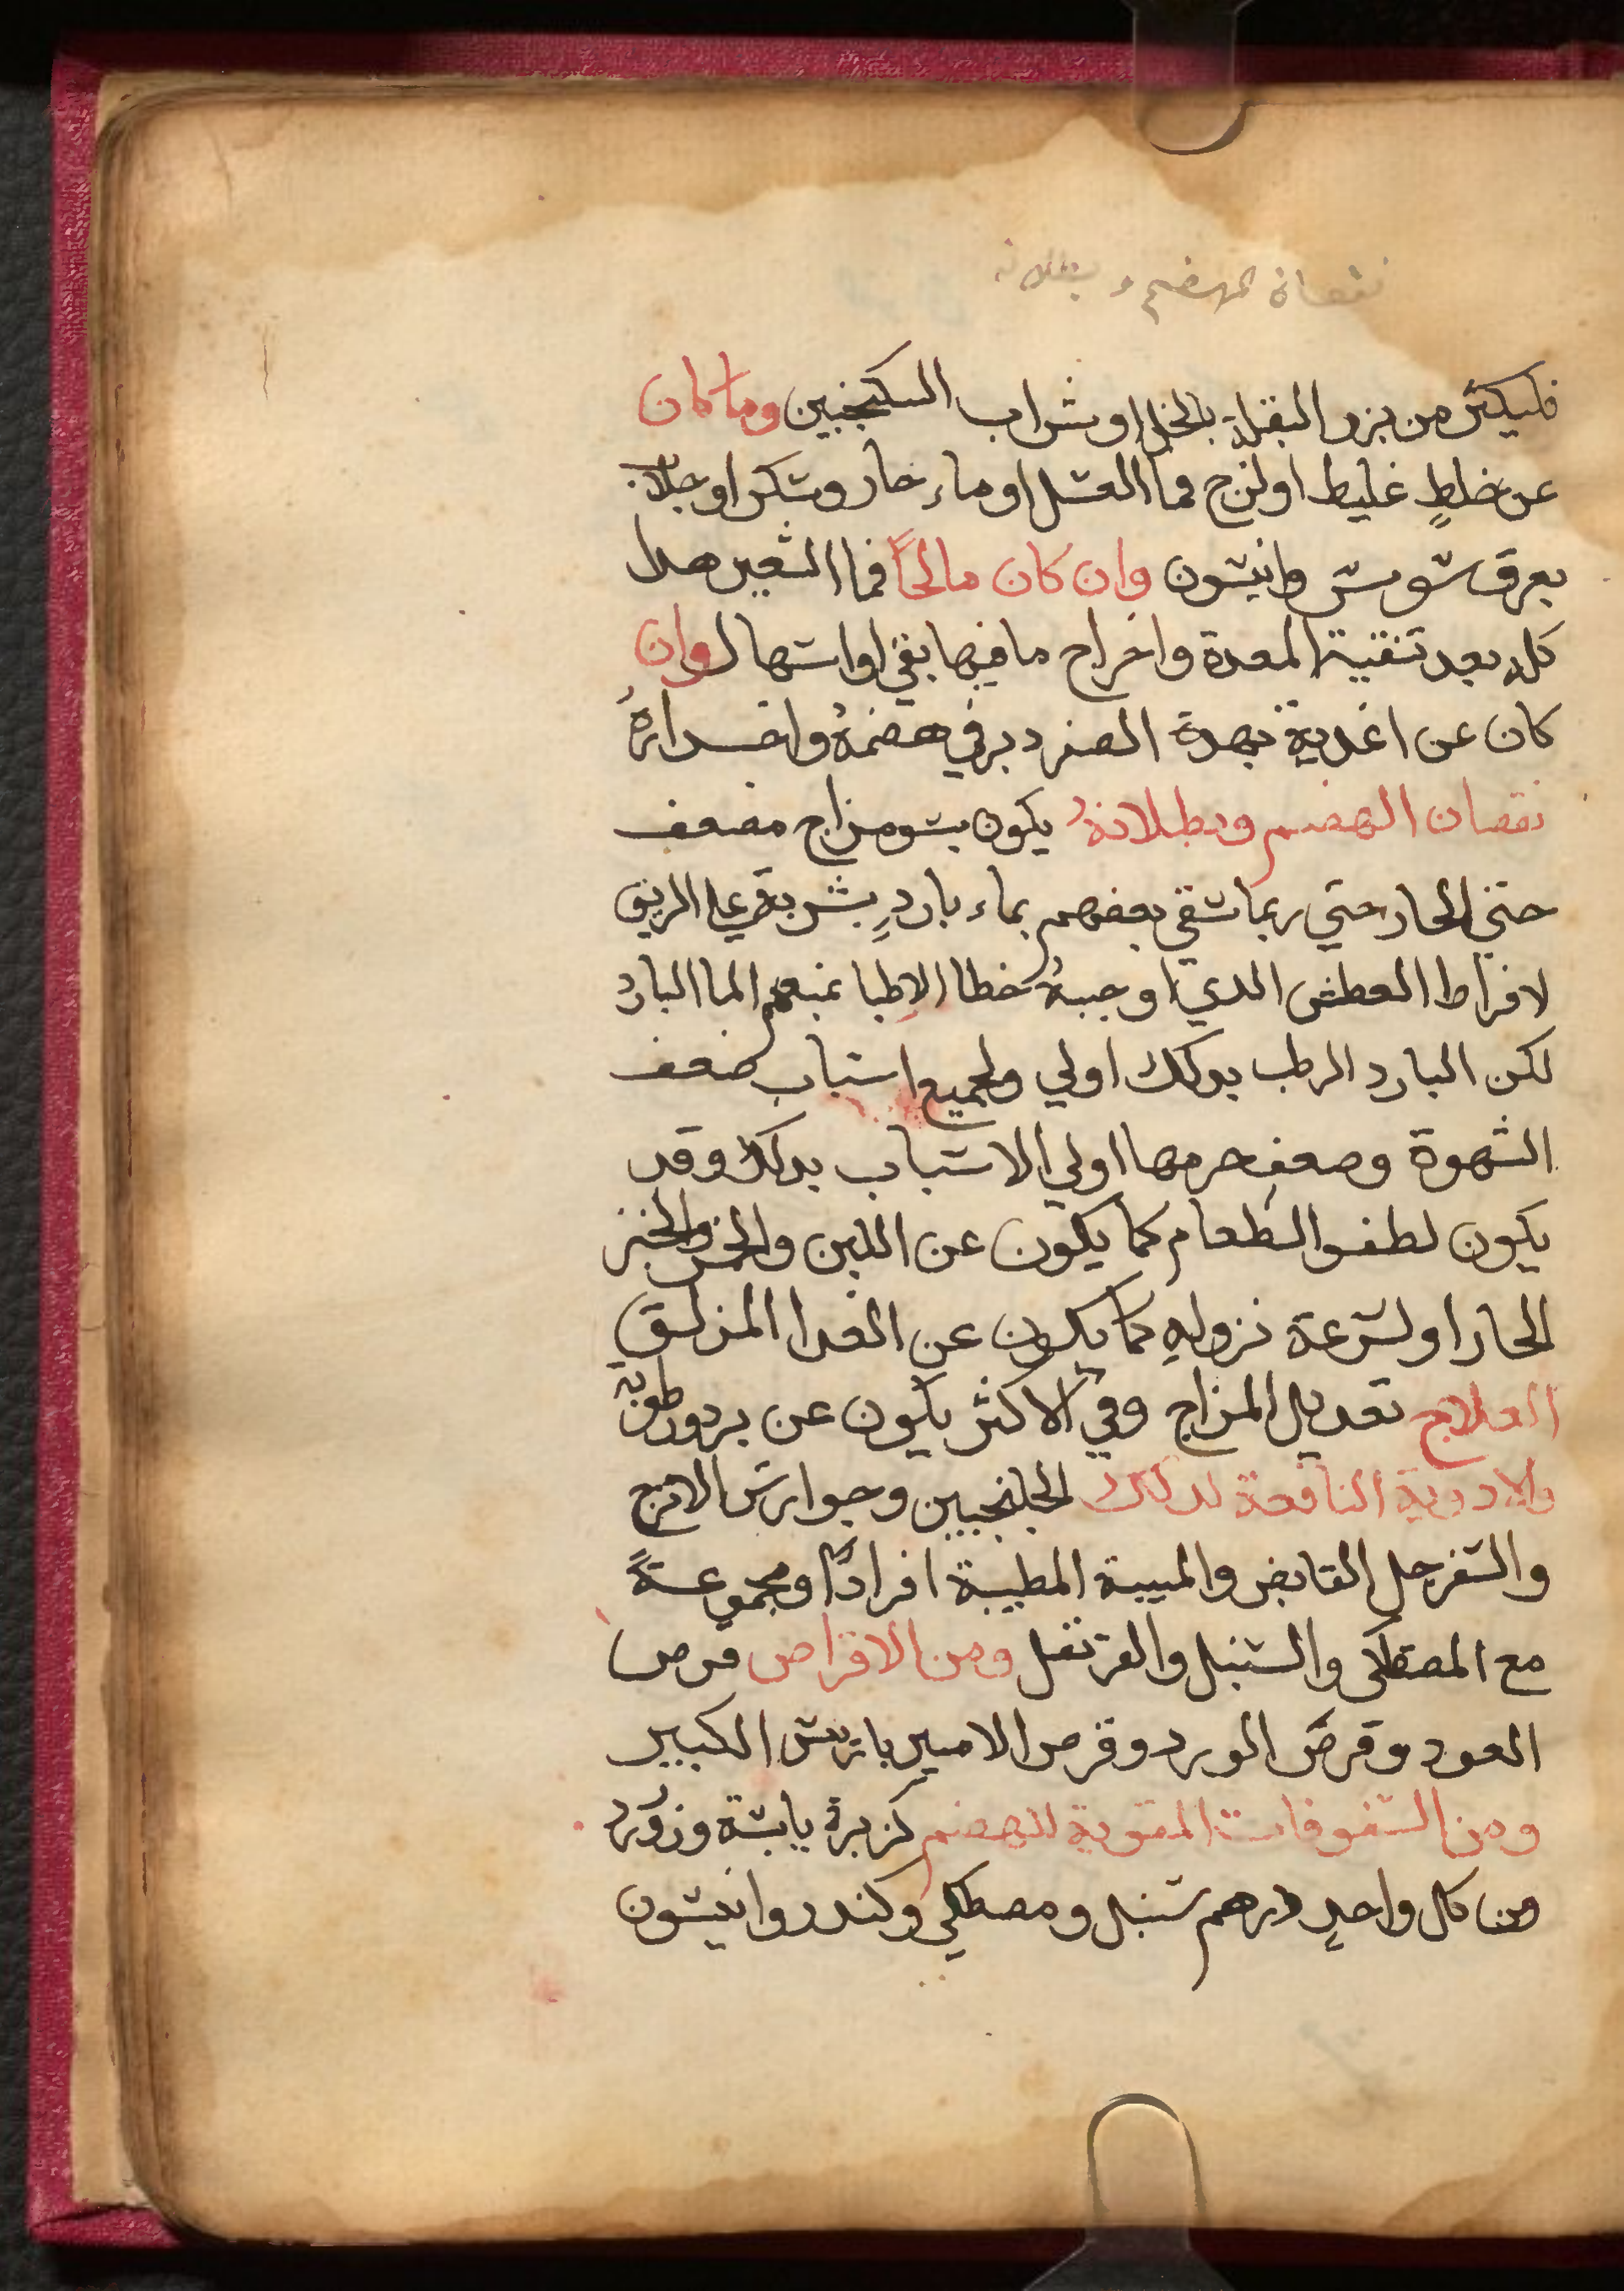 نقصان الهضم وبطلانه
فليكثر من بزر البقلة بالخل او شراب السكنجبين وما كان
عن خلطٍ غليط او لزج فما العسل او ماء حار وسكر او جلاب
بعرق سوس وانيسون وان كان مالحاً فما الشعير هدا
كله بعد تنقية المعدة واخراج ما فيها بقي او اسهال وان
كان عن اغدية بهده الصفه دبر في هضمهُ وانحدارهُ
نقصان الهضم وبطلانهُ يكون بسو مزاج مضعف
حتي الحار حتي ربما شفي بعضهم بماء باردٍ يشربه علي الريق
لافراط العطش الدي اوجبهُ خطا الاطبا بمنعهم الما البارد
لكن البارد الرطب بدلك اولي ولجميع اسباب ضعف
الشهوة وضعف جرمها اولي الاسباب بدلك وقد
يكون لطفو الطعام كما يكون عن اللبن والخمر والخبز
الحار او لسرعة نزولهِ كما يكون عن الغدا المزلق
العلاج تعديل المزاج وفي الاكثر يكون عن برد ورطوبة
والادوية النافعة لدلك الجلنجبين وجوارش الاترج
والسفرجل القابض والميبة المطيبة افراداً ومجموعةً
مع المصطكي والسنبل والقرنفل ومن الاقراص قرص
العود وقرص الورد وقرص الامير باريس الكبير
ومن السفوفات المقوية للهضم كزبرة يابسة وزر ورد
من كل واحدٍ درهم سنبل ومصطكي وكندر وانيسون